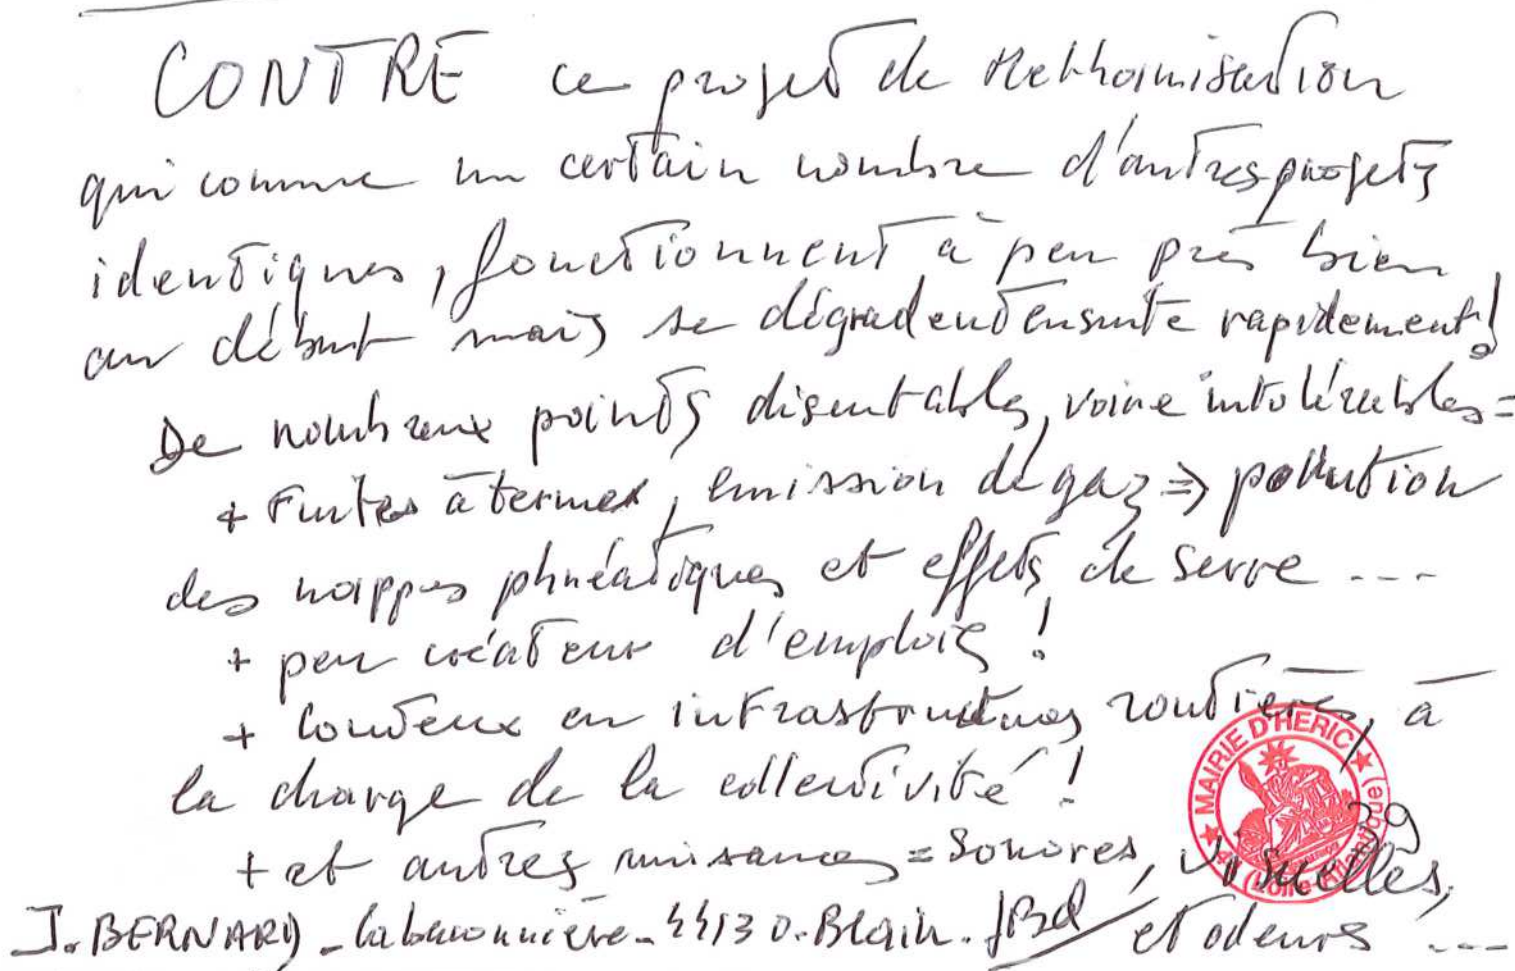 CONTRE ce projet de Methanisation
qui comme un certain nombre d'autres projets
identiques, fonctionnent à peu près bien
au début mais se dégradent ensuite rapidement !
De nombreux points discutables, voire intolérables =
+ Fuites à termes, emission de gaz => pollution
des nappes phréatiques et effets de serre ....
+ peu créateur d'emplois !
+ Couteux en infrastructures routières, à
la charge de la collectivité !
MAIRIE D'HERIC
(Loire-Atlantique)
39
+ et autres nuisances = sonores, visuelles,
et odeurs ....
J. BERNARD - la - 44130 - Blain.